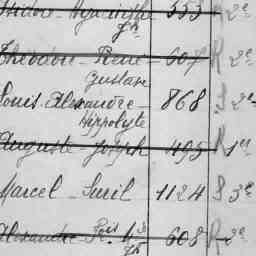 Isidore - Hyacinthe 553 R 2e
Théodore - René 607 R 2e
Gustave
Louis Alexandre - 868 S 2e
Hippolyte
Auguste - Joseph 495 R 1er
Marcel - Suril 1124 S 3e
Alexandre 608 R 2e